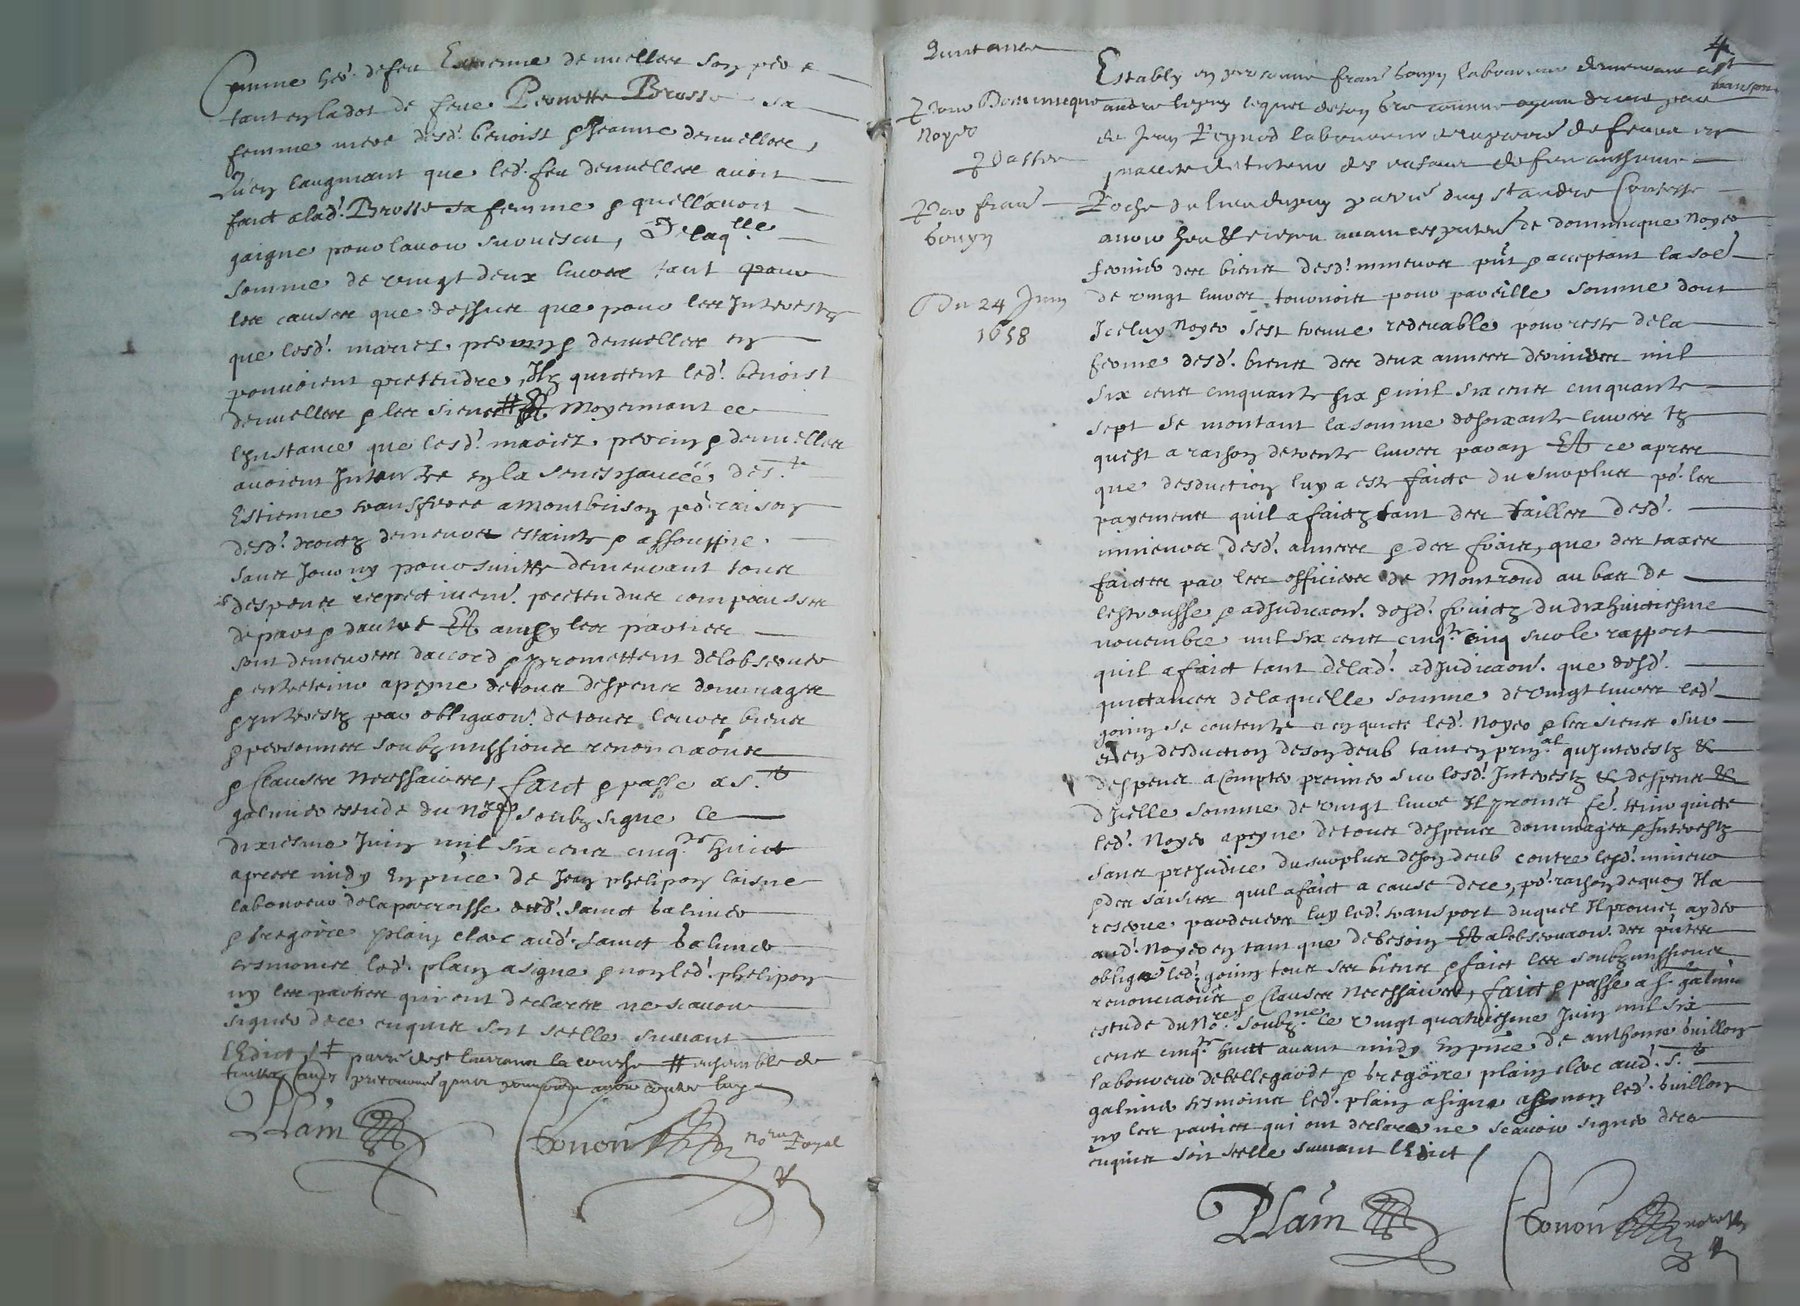 Comme her. de feu Estienne de nuellee son pere
tant en la dot de feue Pernette Brosse sa
femme mere desd. benoist & Jeanne denuellee,
Qu'en laugmant que led. feu denuellee avoit
faict a lad. Brosse sa femme & quell'avoit
gaigne pour lavoir survescu, De laq.lle
somme de vingt deux livres tant pour
les causes que dessus que pour les Interestz
que lesd. mariez perrin & denuellee en
pouvoient pretendre, Ilz quictent led. benoist
denuellee & les siens # Moyennant ce
linstance que lesd. mariez perrin & denuellee
avoient Intentée en la seneschaucée de S.t
Estienne transferee a Montbrison po. raison
desd. droictz demeure estainte & assouppie
sans Jour ny poursuitte demeurant tous
despens respectivem. pretendus compensses
de part & daultre Et ainsy les parties
sont demeurees daccord & promettent de lobserver
& entretenir a peyne de tous despens dommages
& Interestz par obligaon. de tous leurs biens
& personnes soubzmissions renonciaons
& Clauses necessaires, faict & passe a S.t
galmier estude du No.re soubzsigne le
dixiesme Juin mil six cens cinq.te huict
apres midy En p'nce de Jean phelipon laisne
laboureur de la parroisse dud. Sainct galmier
& gregoire plain clerc aud. Sainct galmier
tesmoins led. plain a signe & non led. phelipon
ny les parties qui ont declaree ne scavoir
signer de ce enquis soit scelle suivant
lEdict
Plain
Tonon no.re Royal
Quictance
Pour Dominique
Noyer
Par fran.
gouyn
Du 24 Juin
1658
4
Estably en personne fran. gouyn laboureur demeurant a St
andre lequel de son gre comme ayant
de Jean Peynod laboureur
Roche
avoir heu & receu avant ces p'ntes de dominique Noyer
fermier des biens desd. mineurs p'nt & acceptant la so.e
de vingt livres tournois pour pareille somme dont
Iceluy Noyer sest treuve redevable pour reste de la
ferme desd. biens des deux annees dernieres mil
six cens cinquante six & mil six cens cinquante
sept se montant la somme de soixante livres tz
quest a raison de trente livres par an Et ce apres
que desduction luy a este faicte du surplus po. les
payemens quil a faictz tant des tailles desd.
mineurs desd. annees & des fraictz, que des taxes
faictes par les officiers de Montrond au bas de
lestrousse & adjudicaon. desd. fruictz du dixhuictiesme
novembre mil six cens cinq.te cinq sur le rapport
quil a faict tant de lad. adjudicaon. que desd.
quictances de laquelle somme de vingt livres led.
gouin se contente en quicte led. Noyer & les siens sur
& en desduction de son deub tant en prin.al qu'Interestz &
despens a compter premier sur lesd. Interestz & despens &
dIcelle somme de vingt livres Il promet fe. tenir quicte
led. Noyer a peyne de tous despens dommages & Interestz
sans prejudice du surplus de son deub contre lesd. mineurs
& des saisies quil a faict a cause de ce, po. raison de quoy Il a
reserve pardevers luy led. transport duquel Il promet ayder
aud. Noyer en tant que de besoin Et a lobservaon. des p'ntes
oblige led. gouin tous ses biens & faict les soubzmissions
renonciaons & Clauses necessaires, faict & passe a S. galmier
estude du No.re soubz.ne le vingt quatriesme Juin mil six
cens cinq.te huict avant midy En p'nce de anthoine guillon
laboureur de bellegarde & gregoire plain clerc aud. S.t
galmier tesmoins led. plain a signe & non led. guillon
ny les parties qui ont declare ne scavoir signer de ce
enquis soit scelle suivant lEdict
Plain
Tonon